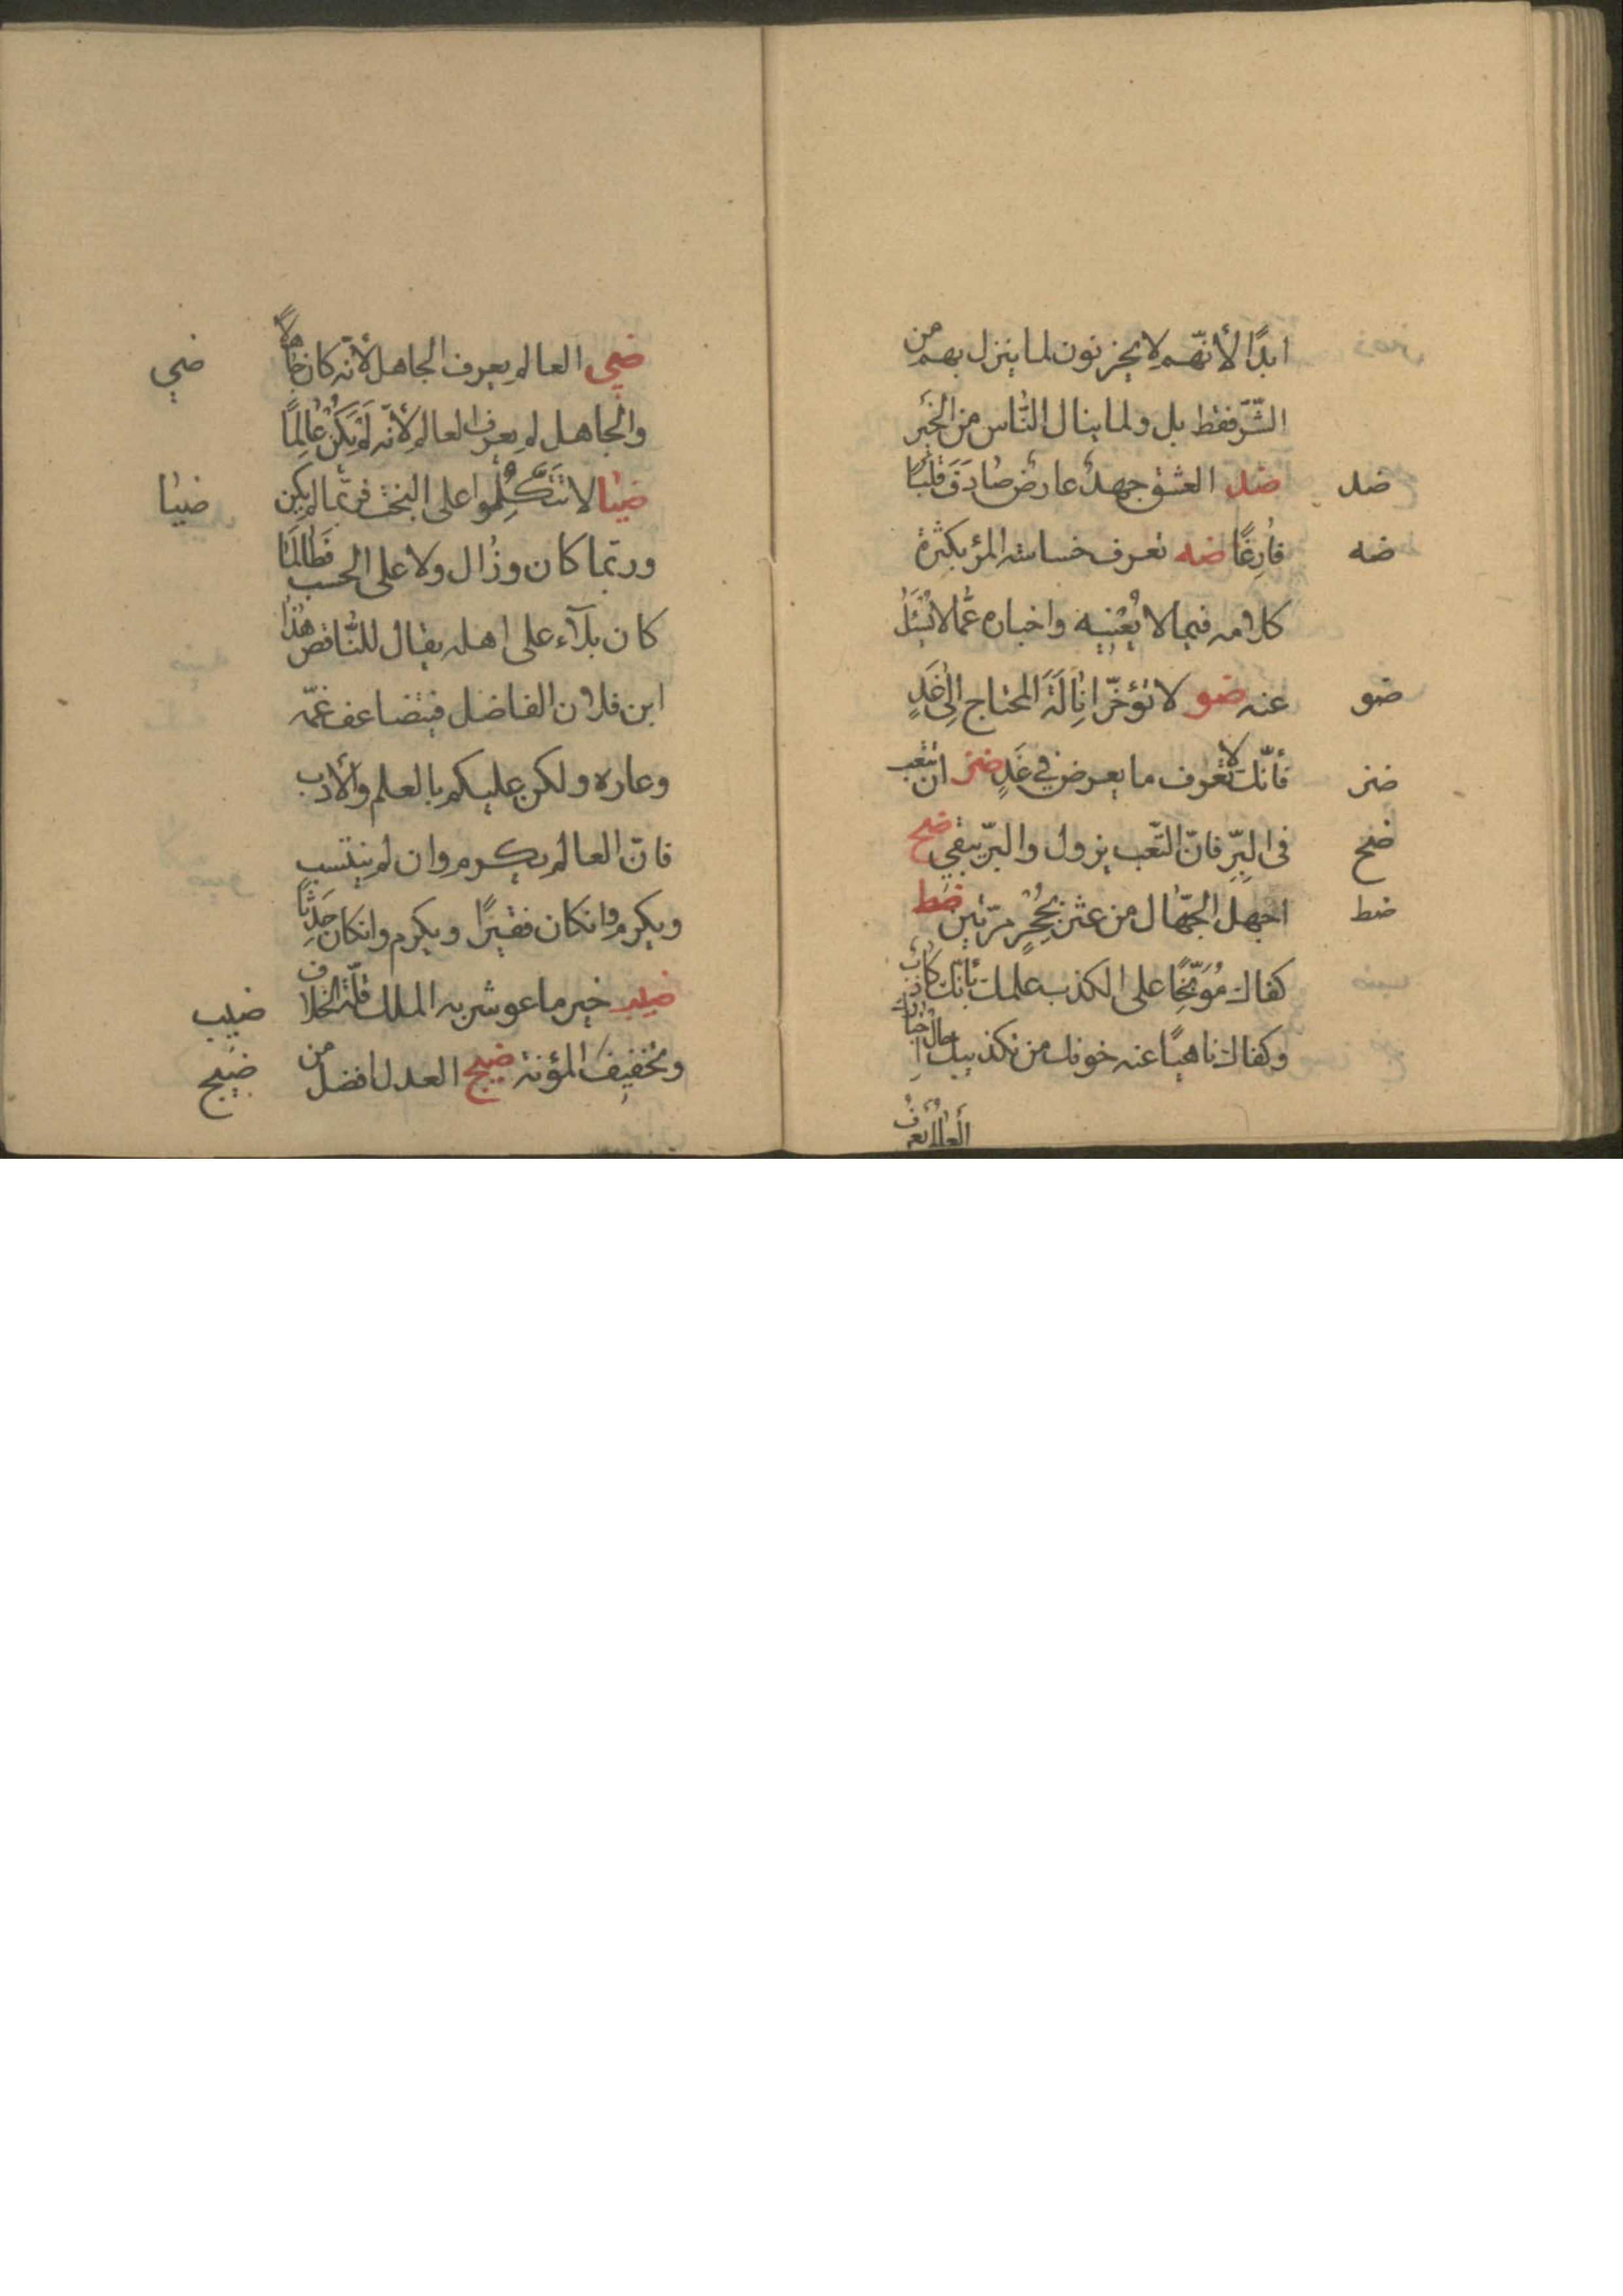 ابدًا لأنّهم لا يحزنون لما ينزل بهم من
الشّرّ فقط بل ولما ينال النّاس من الخير
ضد ضد العشق جهلٌ عارضٌ صادَفَ قلبًا
ضه فارغًا ضه تعرف خساسة المرؤ بكثرة
كلامه فيما لا يُعْنيه واخباره عمّا لا يُسْئَلُ
ضو عنه ضو لا تؤخّر انالَةَ المحتاج الى غَدٍ
ضز فأنّك لا تعرف ما يعرض في غَدٍ ضز ان تتعب
ضح فى البِرِّ فانّ التّعب يزول والبرّ يبقى ضح
ضط اجهل الجهّال من عثر بحجرٍ مرّتين ضط
كفاك مُوَبّخًا على الكذب علمك بأنّك كاذب
وكفاك ناهيًا عنه خوفك من تكذيبك حال اخبارك
العالم يعرف
ضي ضي العالم يعرف الجاهل لأنّه كان جاهلًا
والجاهل لم يعرف العالم لأنّه لَمْ يَكُنْ عالِمًا
ضيا ضيا لا تتّكلموا على البخت فربّما لم يكن
وربّما كان وزال ولا على الحسب فَطالَمَا
كان بلآء على اهله يقال للنّاقص هذا
ابن فلان الفاضل فيتضاعف غمّه
وعاره ولكن عليكم بالعلم والأدب
فانّ العالم يكرم وان لم ينتسب
ويكرم وانكان فقيرًا ويكرم وانكان حَدِثًا
ضيب ضيب خير ما عوشر به الملك قلّة الخلاف
ضيج وتخفيف المؤنة ضيج العدل افضل من